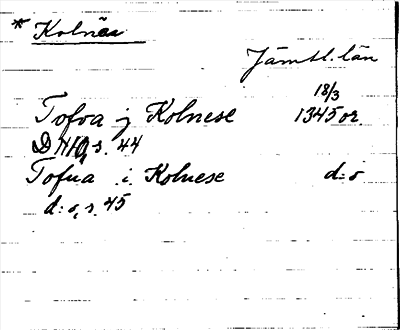 * Kolnäs
Jämtl. län
18/3
Tofva j Kolnese 1345 or.
DHH, s. 44
Tofua i Kolnese d:o
d:o, s. 45